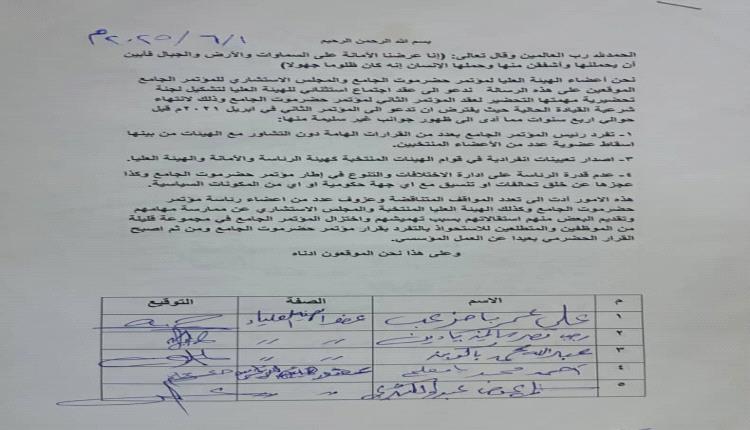 ٢٠٢٥/٦/١م
بسم الله الرحمن الرحيم
الحمدلله رب العالمين وقال تعالى: (إنا عرضنا الأمانة على السماوات والأرض والجبال فأبين
أن يحملنها وأشفقن منها وحملها الأنسان إنه كان ظلوما جهولا)
نحن أعضاء الهيئة العليا لمؤتمر حضرموت الجامع والمجلس الاستشاري للمؤتمر الجامع
الموقعين على هذه الرسالة تدعو الى عقد اجتماع استثنائي للهيئة العليا لتشكيل لجنة
تحضيرية مهمتها التحضير لعقد المؤتمر الثاني لمؤتمر حضرموت الجامع وذلك لانتهاء
شرعية القيادة الحالية حيث يفترض ان تدعو الى المؤتمر الثاني في ابريل ٢٠٢١م قبل
حوالي اربع سنوات مما أدى الى ظهور جوانب غير سليمة منها:
١- تفرد رئيس المؤتمر الجامع بعدد من القرارات الهامة دون التشاور مع الهيئات من بينها
اسقاط عضوية عدد من الأعضاء المنتخبين.
٣- اصدار تعيينات انفرادية في قوام الهيئات المنتخبة كهيئة الرئاسة والأمانة والهيئة العليا.
٤- عدم قدرة الرئاسة على ادارة الاختلافات والتنوع في إطار مؤتمر حضرموت الجامع وكذا
عجزها عن خلق تحالفات او تنسيق مع اي جهة حكومية او اي من المكونات السياسية.
هذه الامور ادت الى تعدد المواقف المتناقضة وعزوف عدد من اعضاء رئاسة مؤتمر
حضرموت الجامع وكذلك الهيئة العليا المنتخبة والمجلس الاستشاري عن ممارسة مهامهم
وتقديم البعض منهم استقالاتهم بسبب تهميشهم واختزال المؤتمر الجامع في مجموعة قليلة
من الموظفين والمتطلعين للاستحواذ بالتفرد بقرار مؤتمر حضرموت الجامع ومن ثم اصبح
القرار الحضرمي بعيدا عن العمل المؤسسي.
وعلى هذا نحن الموقعون ادناه
م الاسم الصفة التوقيع
١ علي عمر عضو
٢ " "
٣ عبدالله محمد " "
٤ احمد محمد عضو
٥ عوض " "